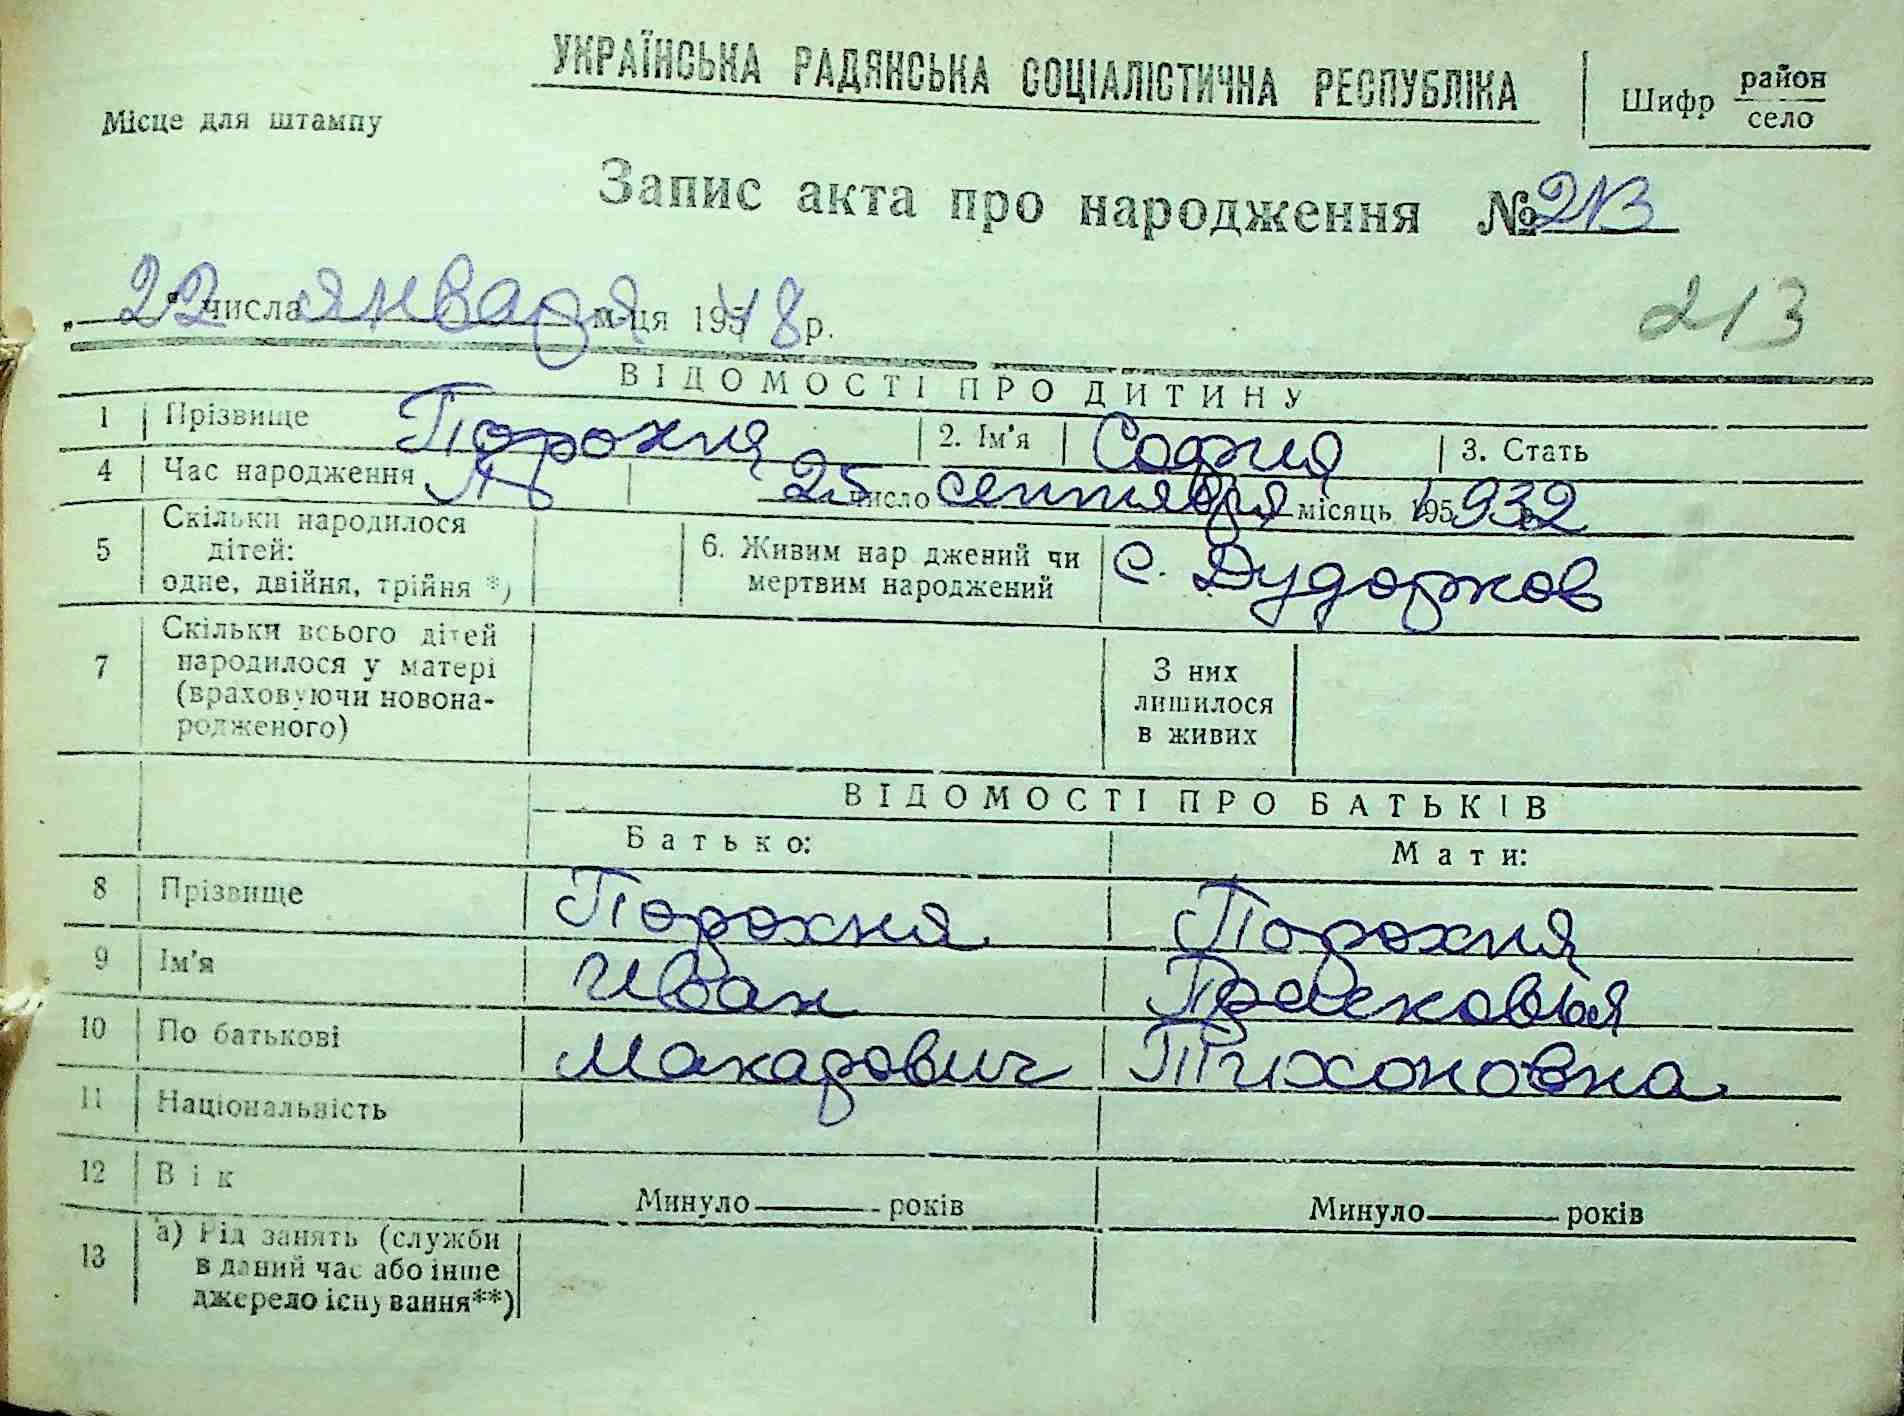 УКРАЇНСЬКА РАДЯНСЬКА СОЦІАЛІСТИЧНА РЕСПУБЛІКА
Шифр район
село
Місце для штампу
Запис акта про народження № 213
„22" числа января м-ця 1948 р.
213
ВІДОМОСТІ ПРО ДИТИНУ
1 Прізвище Порохня 2. Ім'я София 3. Стать
4 Час народження 25 число сентября місяць 1932
5 Скільки народилося дітей: одне, двійня, трійня *)
6. Живим нар джений чи мертвим народжений с. Дудорков
7 Скільки всього дітей народилося у матері (враховуючи новонародженого)
З них лишилося в живих
ВІДОМОСТІ ПРО БАТЬКІВ
Батько: Мати:
8 Прізвище Порохня Порохня
9 Ім'я Иван Прасковья
10 По батькові Макарович Тихоновна
11 Національність
12 Вік Минуло років Минуло років
13 а) Рід занять (служби в даний час або інше джерело існування**)